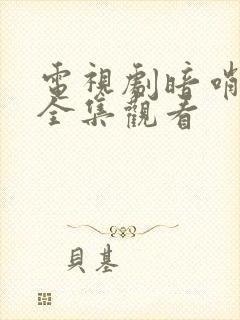 電視劇暗哨
全集觀看
貝基